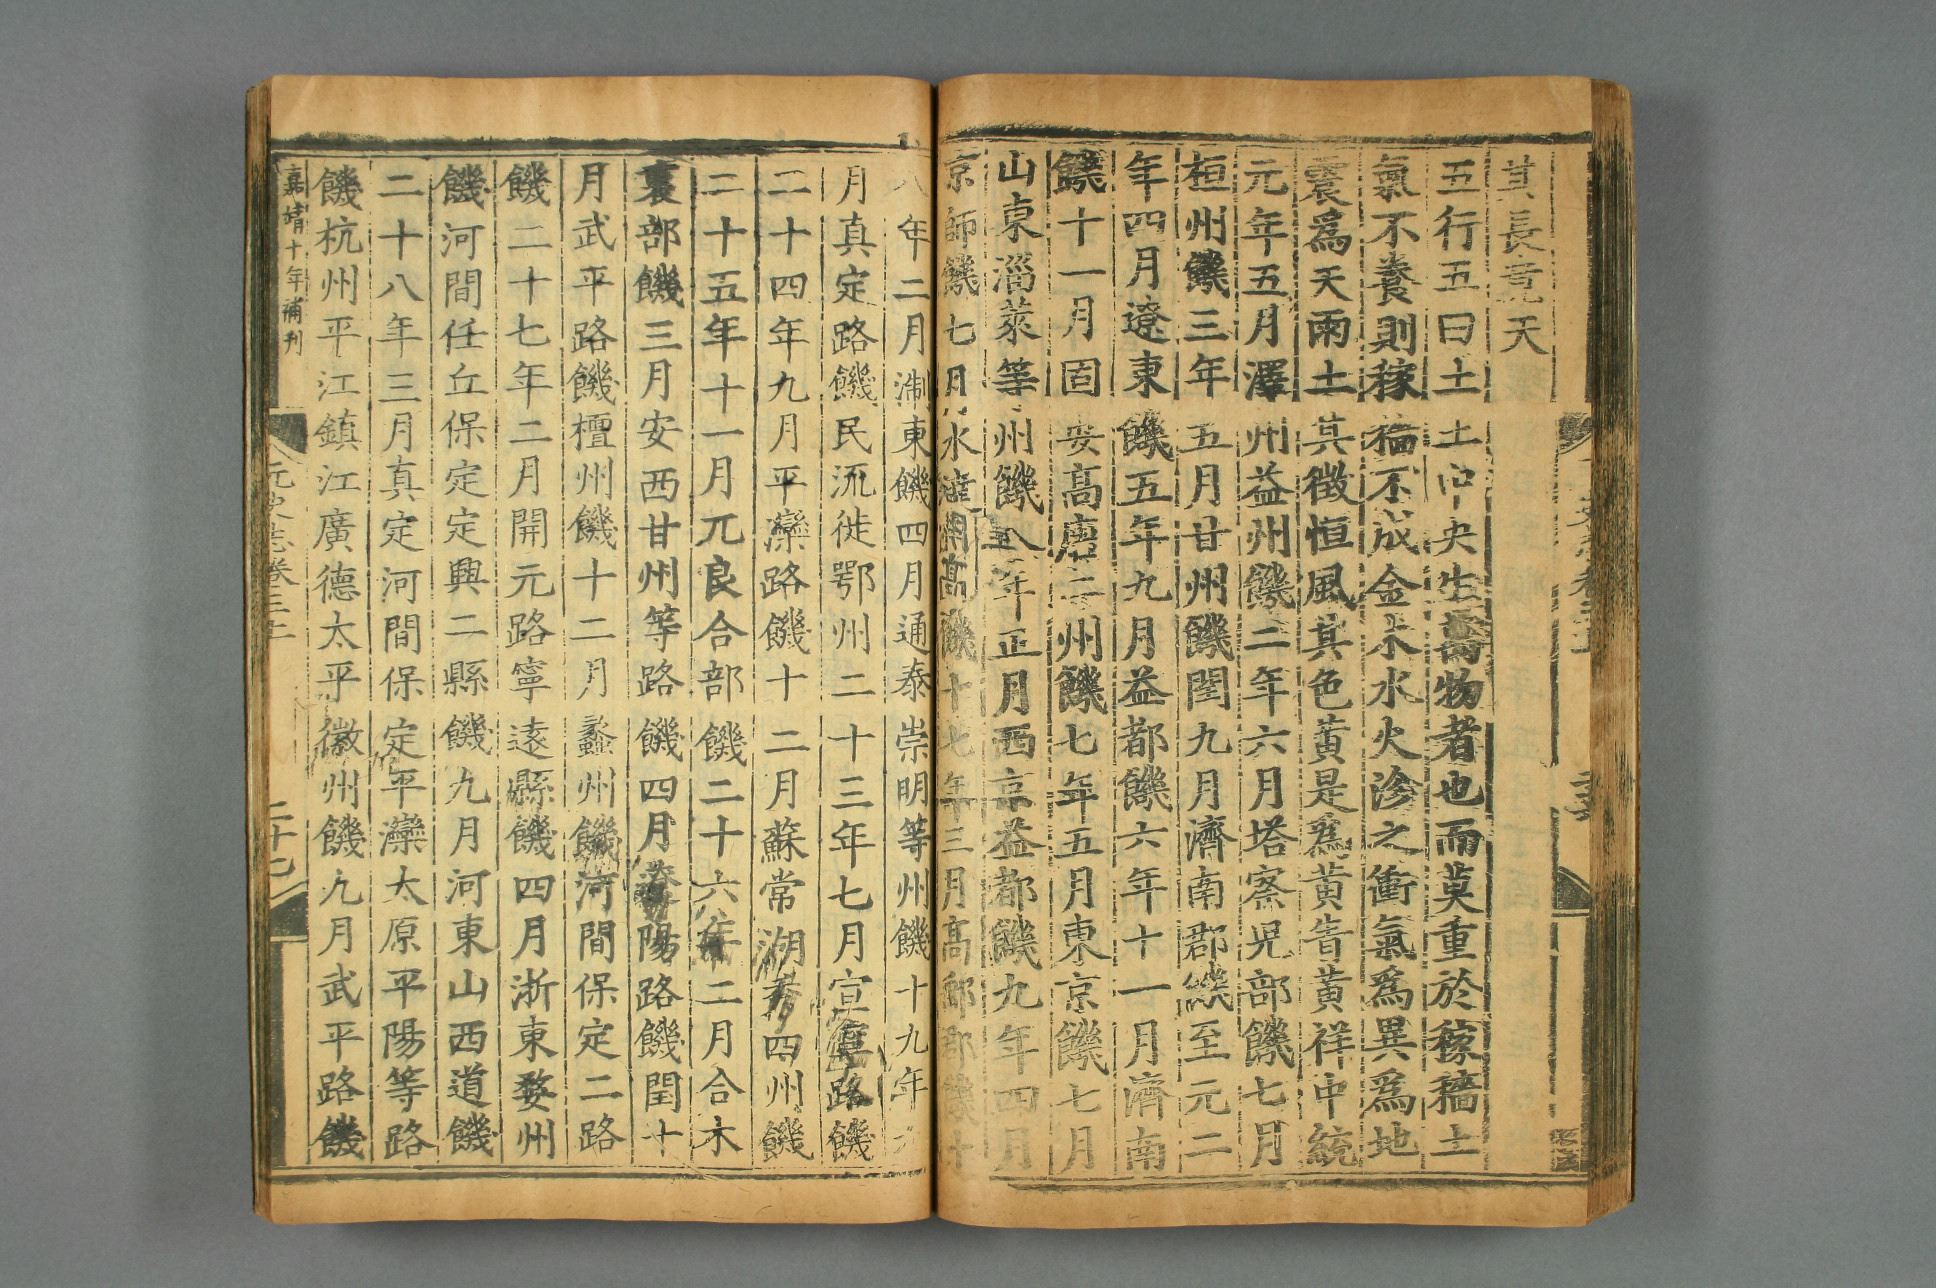 其長竟天
五行五曰土土中央生萬物者也而莫重於稼穡土
氣不養則稼穡不成金木水火沴之衝氣爲異爲地
震爲天雨土其徵恒風其色黃是爲黃眚黃祥中統
元年五月澤州益州饑二年六月塔察児部饑七月
桓州饑三年五月甘州饑閏九月濟南郡饑至元二
年四月遼東饑五年九月益都饑六年十一月濟南
饑十一月固安高唐二州饑七年五月東京饑七月
山東淄萊等州饑八年正月西京益都饑九年四月
京師饑七月水達達高饑十七年三月高郵郡饑十
八年二月淛東饑四月通泰崇明等州饑十九年九
月真定路饑民流徙鄂州二十三年七月宣寧路饑
二十四年九月平灤路饑十二月蘇常湖秀四州饑
二十五年十一月兀良合部饑二十六年二月合木
裏部饑三月安西甘州等路饑四月遼陽路饑閏十
月武平路饑檀州饑十二月蠡州饑河間保定二路
饑二十七年二月開元路寧遠縣饑四月浙東婺州
饑河間任丘保定定興二縣饑九月河東山西道饑
二十八年三月真定河間保定平灤太原平陽等路
饑杭州平江鎮江廣德太平徽州饑九月武平路饑
嘉靖十年補刊
元史志卷三上
二十七